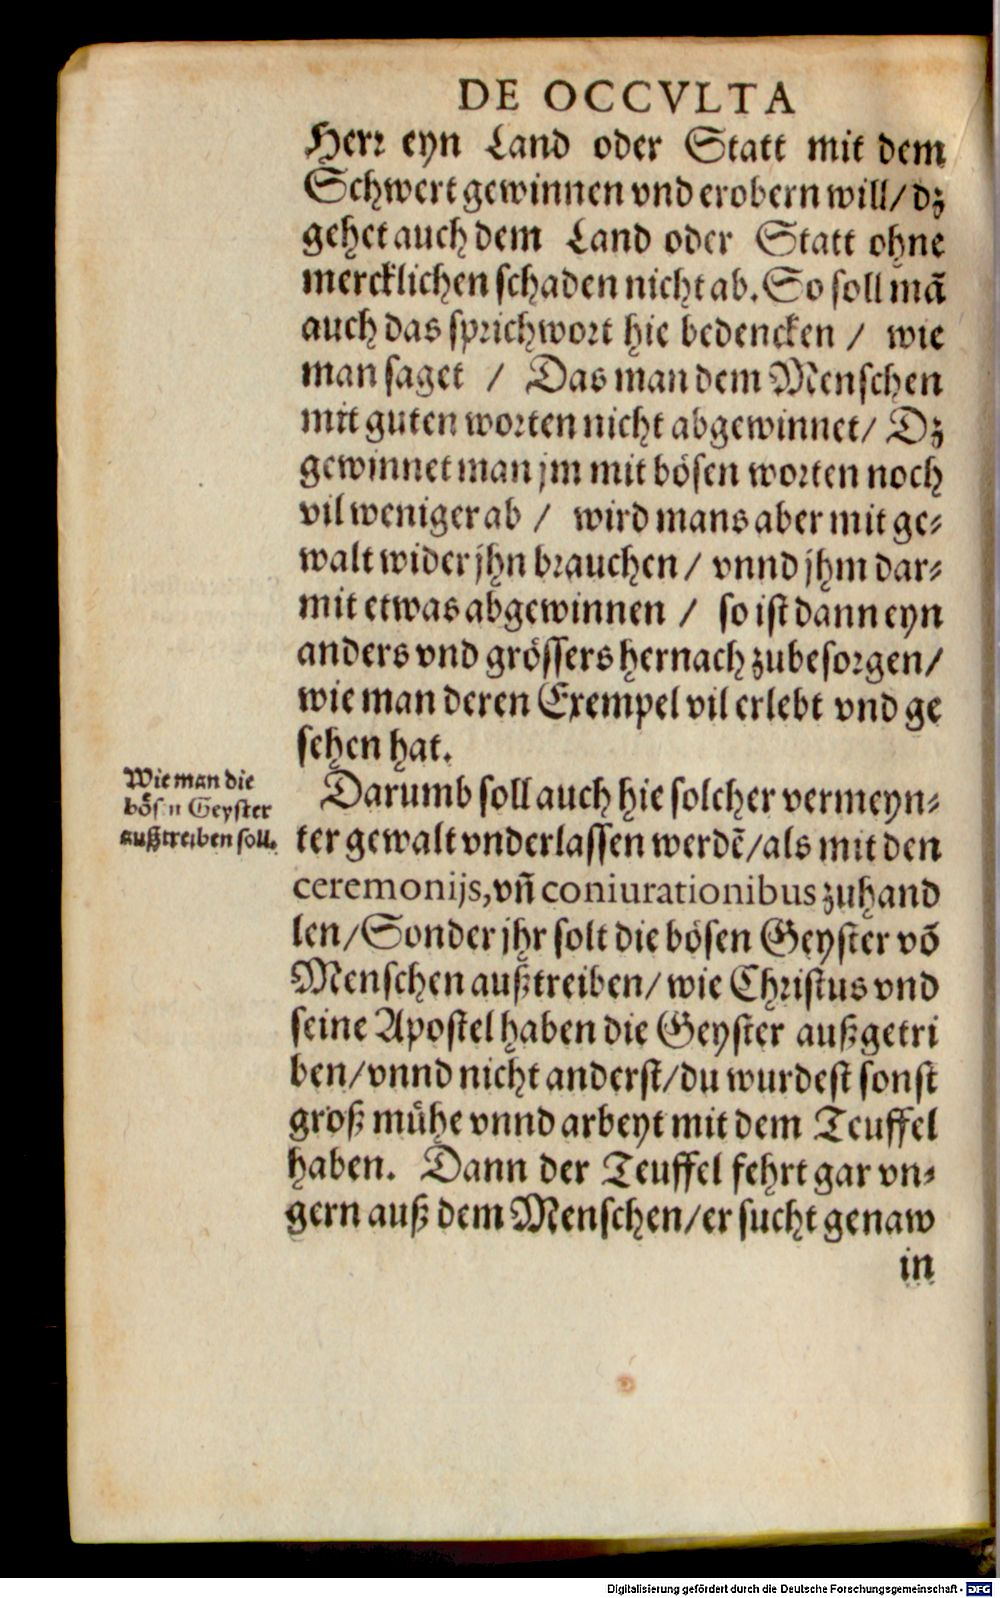 DE OCCVLTA
Herr eyn Land oder Statt mit dem
Schwert gewinnen vnd erobern will/ dz
gehet auch dem Land oder Statt ohne
mercklichen schaden nicht ab. So soll mã
auch das sprichwort hie bedencken / wie
man saget / Das man dem Menschen
mit guten worten nicht abgewinnet/ Dz
gewinnet man jm mit bösen worten noch
vil weniger ab / wird mans aber mit ge-
walt wider jhn brauchen / vnnd jhm dar-
mit etwas abgewinnen / so ist dann eyn
anders vnd grössers hernach zubesorgen/
wie man deren Exempel vil erlebt vnd ge
sehen hat.
Wie man die
bösen Geyster
außtreiben soll.
Darumb soll auch hie solcher vermeyn-
ter gewalt vnderlassen werdẽ/als mit den
ceremonijs, vñ coniurationibus zuhand
len/Sonder jhr solt die bösen Geyster võ
Menschen außtreiben/ wie Christus vnd
seine Apostel haben die Geyster außgetri
ben/vnnd nicht anderst/du wurdest sonst
groß mühe vnnd arbeyt mit dem Teuffel
haben. Dann der Teuffel fehrt gar vn-
gern auß dem Menschen/er sucht genaw
in
Digitalisierung gefördert durch die Deutsche Forschungsgemeinschaft - DFG